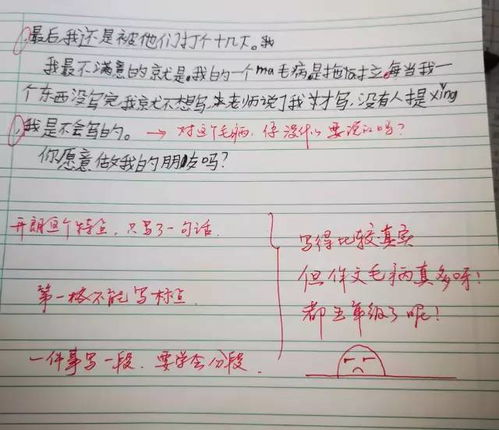 最后我还是被他们打个十几下。我
我最不满意的就是,我的一个ma毛病是拖拉,每当我一
个东西没写完我就不想写,老师说了我才写,没有人提xǐng
我是不会写的。→对这个毛病,你没什么要说的吗?
你愿意做我的朋友吗?
开朗这个特点,只写了一句话.
第一格不能写标点.
一件事写一段,要学会分段.
写得比较真实
但作文毛病真多呀!
都五年级了呢!